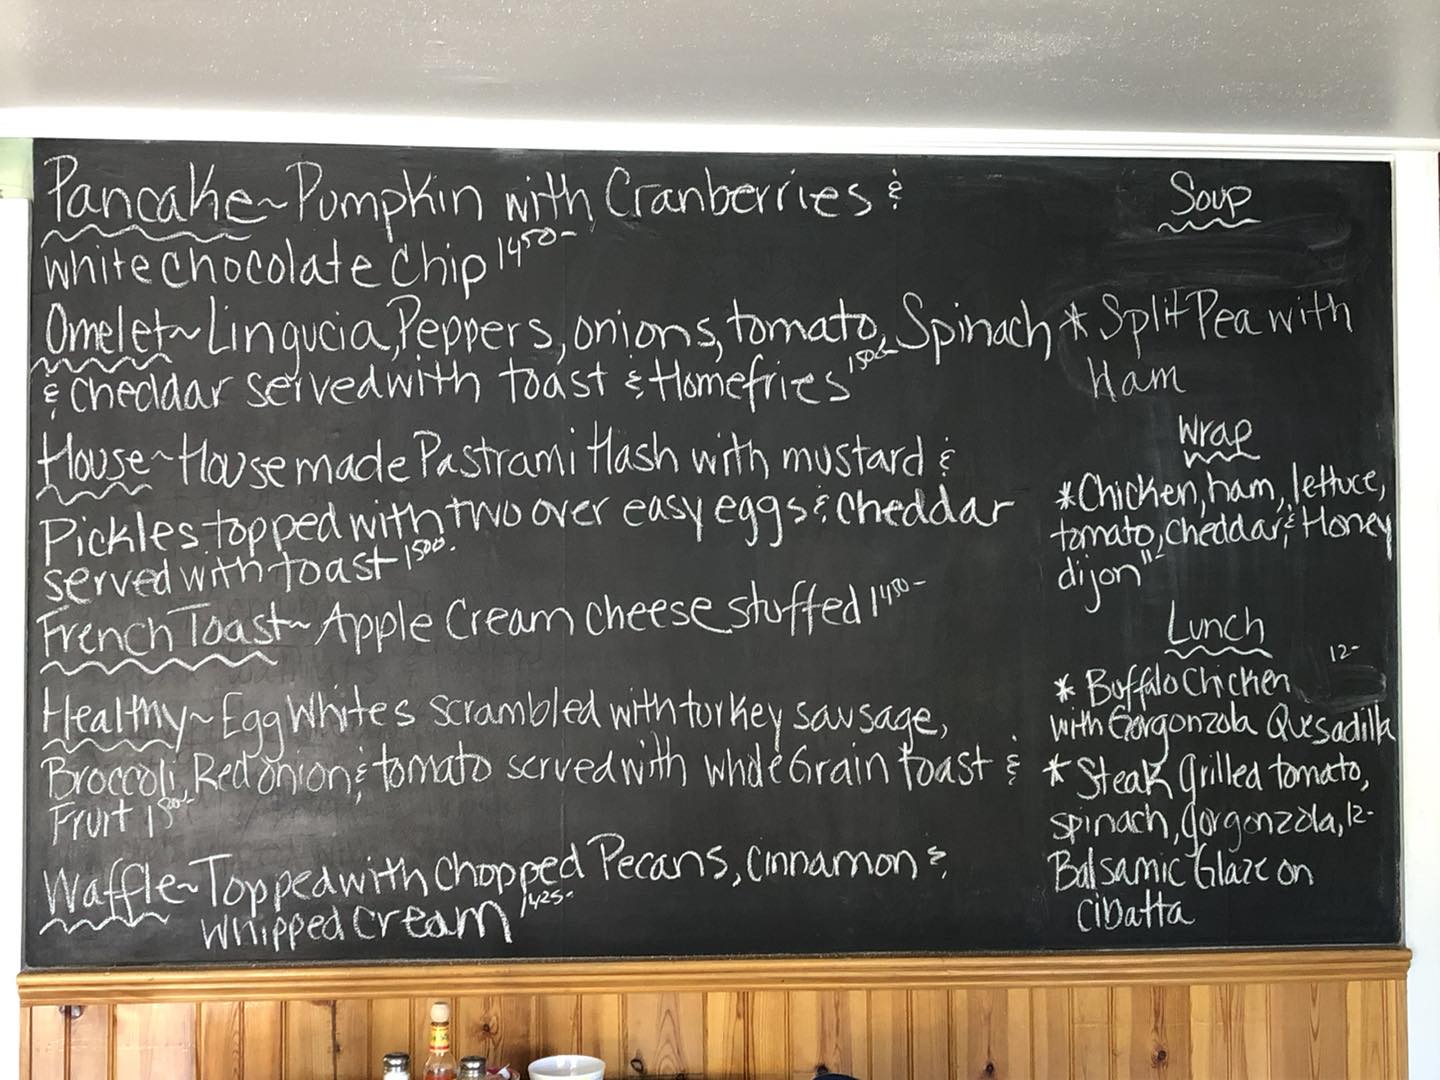 Pancake~Pumpkin with Cranberries &
white chocolate Chip 14⁵⁰-
Omelet~Lingucia, Peppers, onions, tomato, Spinach
& cheddar served with toast & Homefries 15⁰⁰-
House~House made Pastrami Hash with mustard &
Pickles topped with two over easy eggs & cheddar
served with toast 15⁰⁰-
French Toast~Apple Cream cheese stuffed 14⁵⁰-
Healthy~Egg Whites scrambled with turkey sausage,
Broccoli, Red onion & tomato served with whole Grain toast &
Fruit
Waffle~Topped with Chopped Pecans, cinnamon &
whipped cream 14²⁵-
Soup
*Split Pea with
Ham
Wrap
*Chicken, ham, lettuce,
tomato, cheddar, & Honey
dijon
Lunch
12-
* Buffalo Chicken
with Gorgonzola Quesadilla
* Steak grilled tomato,
spinach, gorgonzola, 12-
Balsamic Glaze on
cibatta